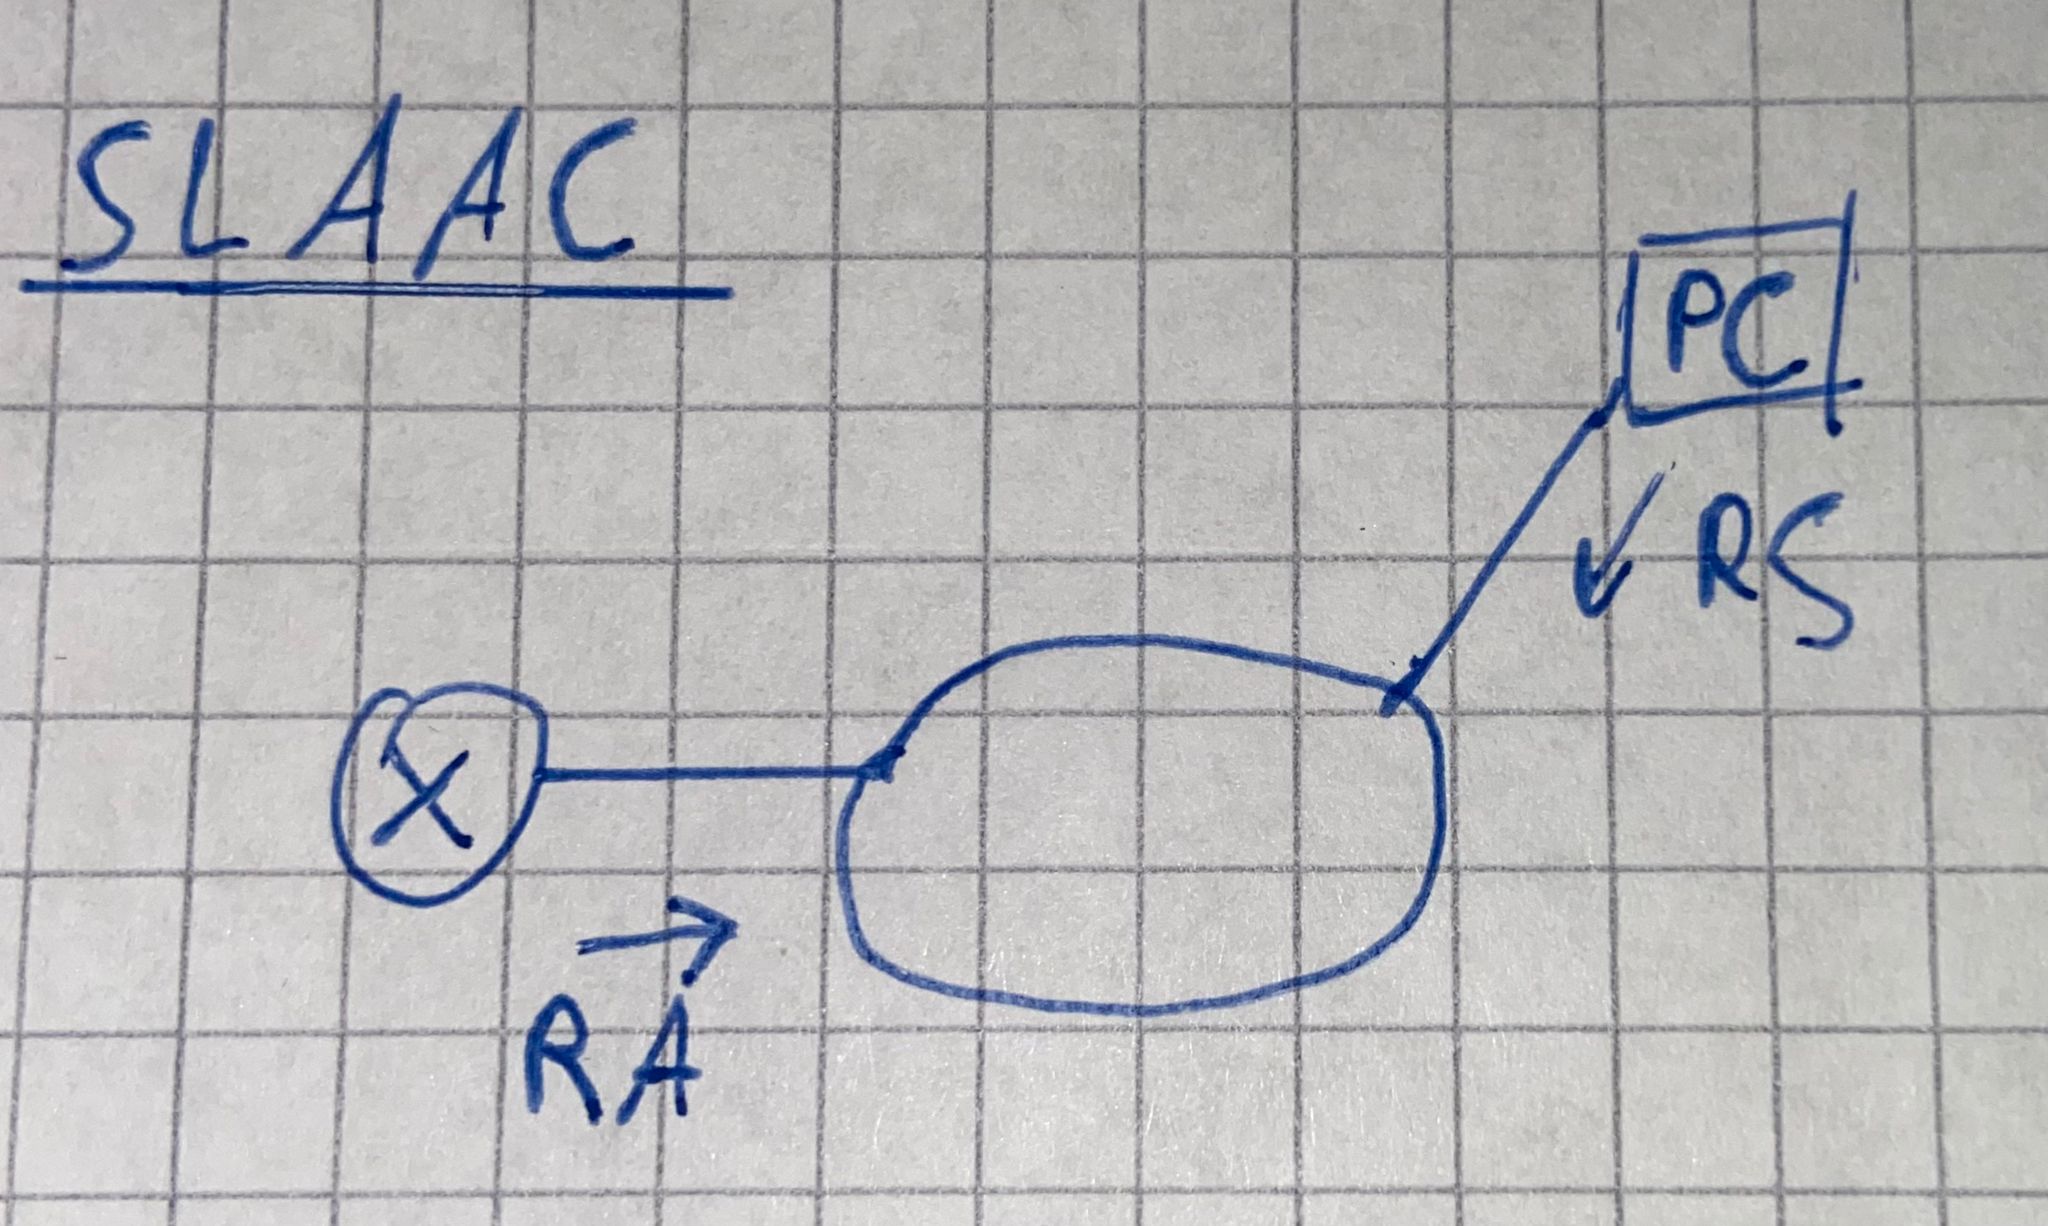 SLAAC
PC
RS
X
RA